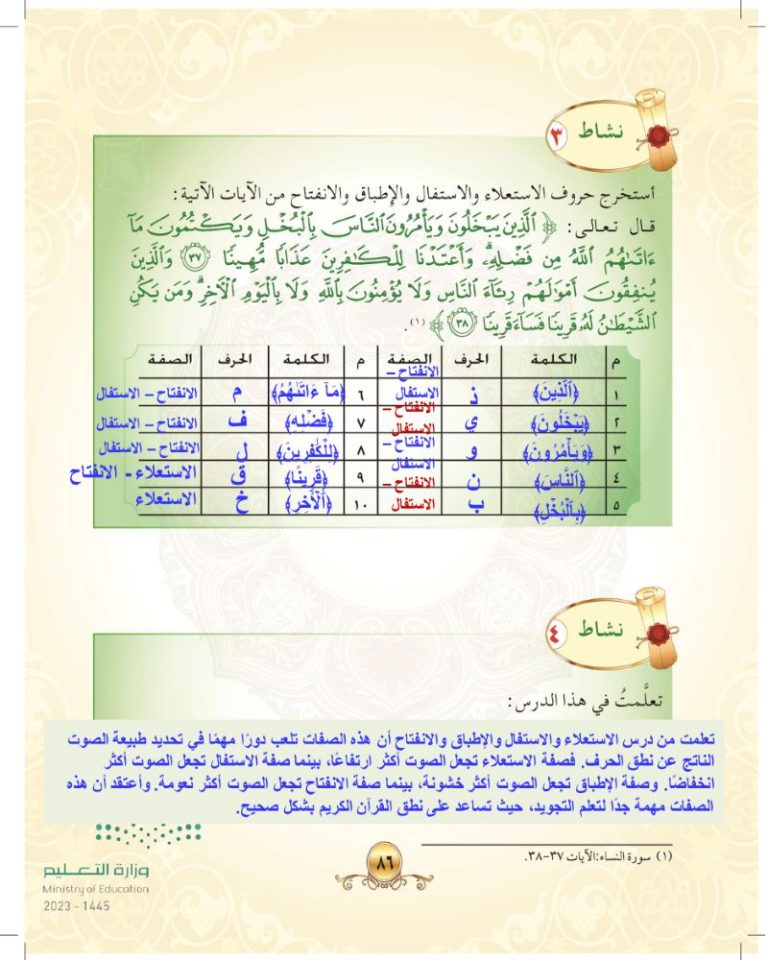 نشاط ٣
أستخرج حروف الاستعلاء والاستفال والإطباق والانفتاح من الآيات الآتية:
قال تعالى: ﴿ ٱلَّذِينَ يَبْخَلُونَ وَيَأْمُرُونَ ٱلنَّاسَ بِٱلْبُخْلِ وَيَكْتُمُونَ مَآ
ءَاتَىٰهُمُ ٱللَّهُ مِن فَضْلِهِۦۗ وَأَعْتَدْنَا لِلْكَٰفِرِينَ عَذَابًا مُّهِينًا ٣٧ وَٱلَّذِينَ
يُنفِقُونَ أَمْوَٰلَهُمْ رِئَآءَ ٱلنَّاسِ وَلَا يُؤْمِنُونَ بِٱللَّهِ وَلَا بِٱلْيَوْمِ ٱلْأَخِرِۗ وَمَن يَكُنِ
ٱلشَّيْطَٰنُ لَهُۥ قَرِينًا فَسَآءَ قَرِينًا ٣٨ ﴾(١).
م الكلمة الحرف الصفة م الكلمة الحرف الصفة
١ ﴿ٱلَّذِينَ﴾ ذ الانفتاح – الاستفال ٦ ﴿مَآ ءَاتَىٰهُمُ﴾ م الانفتاح – الاستفال
٢ ﴿يَبْخَلُونَ﴾ ي الانفتاح – الاستفال ٧ ﴿فَضْلِهِ﴾ ف الانفتاح – الاستفال
٣ ﴿وَيَأْمُرُونَ﴾ و الانفتاح – الاستفال ٨ ﴿لِلْكَٰفِرِينَ﴾ ل الانفتاح – الاستفال
٤ ﴿ٱلنَّاسَ﴾ ن الانفتاح – الاستفال ٩ ﴿قَرِينًا﴾ ق الاستعلاء - الانفتاح
٥ ﴿بِٱلْبُخْلِ﴾ ب ١٠ ﴿ٱلْأَخِرِ﴾ خ الاستعلاء
نشاط ٤
تعلَّمتُ في هذا الدرس:
تعلمت من درس الاستعلاء والاستفال والإطباق والانفتاح أن هذه الصفات تلعب دورًا مهمًا في تحديد طبيعة الصوت
الناتج عن نطق الحرف. فصفة الاستعلاء تجعل الصوت أكثر ارتفاعًا، بينما صفة الاستفال تجعل الصوت أكثر
انخفاضًا. وصفة الإطباق تجعل الصوت أكثر خشونة، بينما صفة الانفتاح تجعل الصوت أكثر نعومة. وأعتقد أن هذه
الصفات مهمة جدًا لتعلم التجويد، حيث تساعد على نطق القرآن الكريم بشكل صحيح.
(١) سورة النساء:الآيات ٣٧-٣٨.
٨٦
وزارة التعليم
Ministry of Education
2023 - 1445